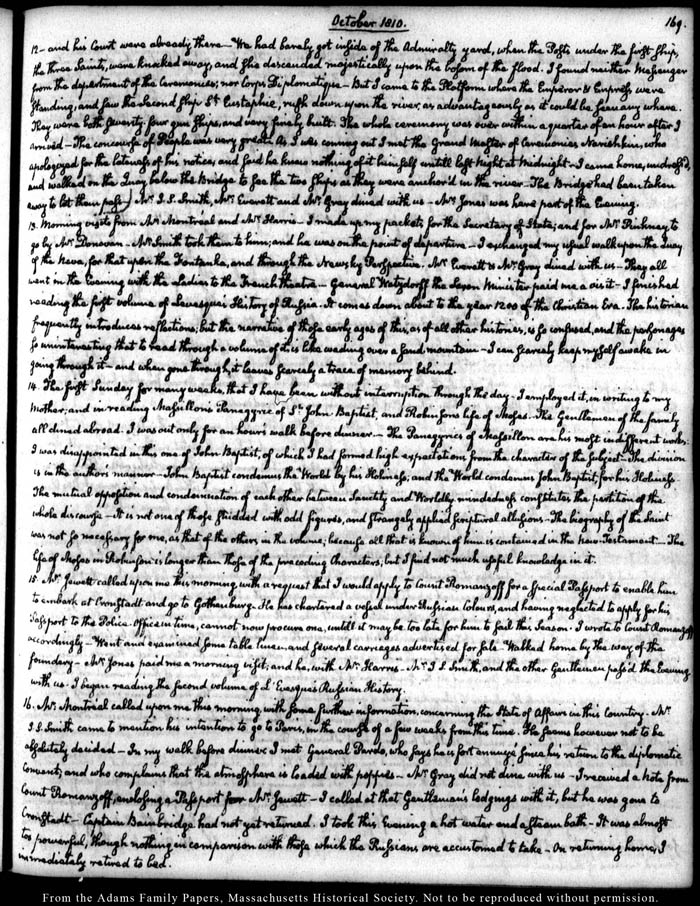 October 1810.
169.
12— and his Court were already there— We had barely got inside of the Admiralty yard, when the Posts under the first ship,
the three Saints, were knocked away, and she descended majestically upon the bosom of the flood. I found neither Messenger
from the department of the Ceremonies; nor Corps Diplomatique— But I came to the Platform where the Emperor & Empress were
standing; and saw the second ship St. Eustaphie, rush down upon the river, as advantageously as it could be seen any where.
They were both seventy four gun ships, and very finely built. The whole ceremony was over within a quarter of an hour after I
arrived— The concourse of People was very great. As I was coming out I met the Grand Master of Ceremonies Narishkin, who
apologized for the lateness of his notice; and said he knew nothing of it himself untill last Night at Midnight— I came home, undress'd,
and walked on the Quay below the Bridge to see the two ships as they were anchor'd in the river— The Bridge had been taken
away to let them pass. Mr. I. S. Smith, Mr. Everett and Mr. Gray dined with us— Mr. Jones was here part of the Evening.
13. Morning visits from Mr. Montréal and Mr. Harris— I made up my packets for the Secretary of State; and for Mr. Pinkney to
go by Mr. Donovan— Mr. Smith took them to him; and he was on the point of departure— I exchanged my usual walk upon the Quay
of the Neva, for that upon the Fontanka, and through the Newsky Perspective. Mr. Everett & Mr. Gray dined with us— They all
went in the Evening with the Ladies to the French theatre— General Watzdorff the Saxon Minister paid me a visit— I finished
reading the first volume of Levesque's History of Russia— It comes down about to the year 1200 of the Christian Era. The historian
frequently introduces reflections; but the narrative of those early ages of this, as of all other histories, is so confused, and the personages
so uninteresting that to read through a volume of it is like wading over a sand mountain— I can scarcely keep myself awake in
going through it— and when gone through, it leaves scarcely a trace of memory behind.
14. The first Sunday for many weeks, that I have been without interruption through the day— I employed it, in writing to my
Mother; and in reading Massillon's Panegyric of St. John Baptist, and Robinson's life of Moses— The Gentlemen of the family
all dined abroad. I was out only for an hour's walk before dinner— The Panegyrics of Massillon are his most indifferent works.
I was disappointed in this one of John Baptist, of which I had formed high expectations from the character of the subject— The division
is in the author's manner— John Baptist condemns the World by his Holiness; and the World condemns John Baptist for his Holiness—
The mutual opposition and condemnation of each other between Sanctity and Worldly mindedness constitutes the partition of the
whole discourse— It is not one of those studded with odd figures, and strangely applied scriptural allusions— The biography of the Saint
was not so necessary for me, as that of the others in the volume; because all that is known of him is contained in the New-Testament— The
life of Moses in Robinson is longer than those of the preceding Characters; but I find not much useful knowledge in it.
15. Mr. Jewett called upon me this morning, with a request that I would apply to Count Romanzoff for a special Passport to enable him
to embark at Cronstadt and go to Gothenburg. He has chartered a vessel under Russian Colours, and having neglected to apply for his
Passport to the Police-Office in time, cannot now procure one, untill it may be too late for him to sail this Season. I wrote to Count Romanzoff
accordingly— Went and examined some table linen, and several carriages advertised for sale— Walked home by the way of the
foundery— Mr. Jones paid me a morning visit; and he, with Mr. Harris— Mr. I. S. Smith, and the other Gentlemen pass'd the Evening
with us. I began reading the second volume of L'Evesque's Russian History.
16. Mr. Montréal called upon me this morning, with some further information, concerning the State of Affairs in this Country— Mr.
I. S. Smith came to mention his intention to go to Paris, in the course of a few weeks from this time. He seems however not to be
absolutely decided— In my walk before dinner I met General Pardo, who says he is fort ennuyé since his return to the diplomatic
Convent; and who complains that the atmosphere is loaded with poppies— Mr. Gray did not dine with us— I received a Note from
Count Romanzoff, enclosing a Passport for Mr. Jewett— I called at that Gentleman's lodgings with it, but he was gone to
Cronstadt— Captain Bainbridge had not yet returned. I took this Evening a hot water and a steam bath— It was almost
too powerful, though nothing in comparison with those which the Russians are accustomed to take— On returning home, I
immediately retired to bed.
From the Adams Family Papers, Massachusetts Historical Society. Not to be reproduced without permission.